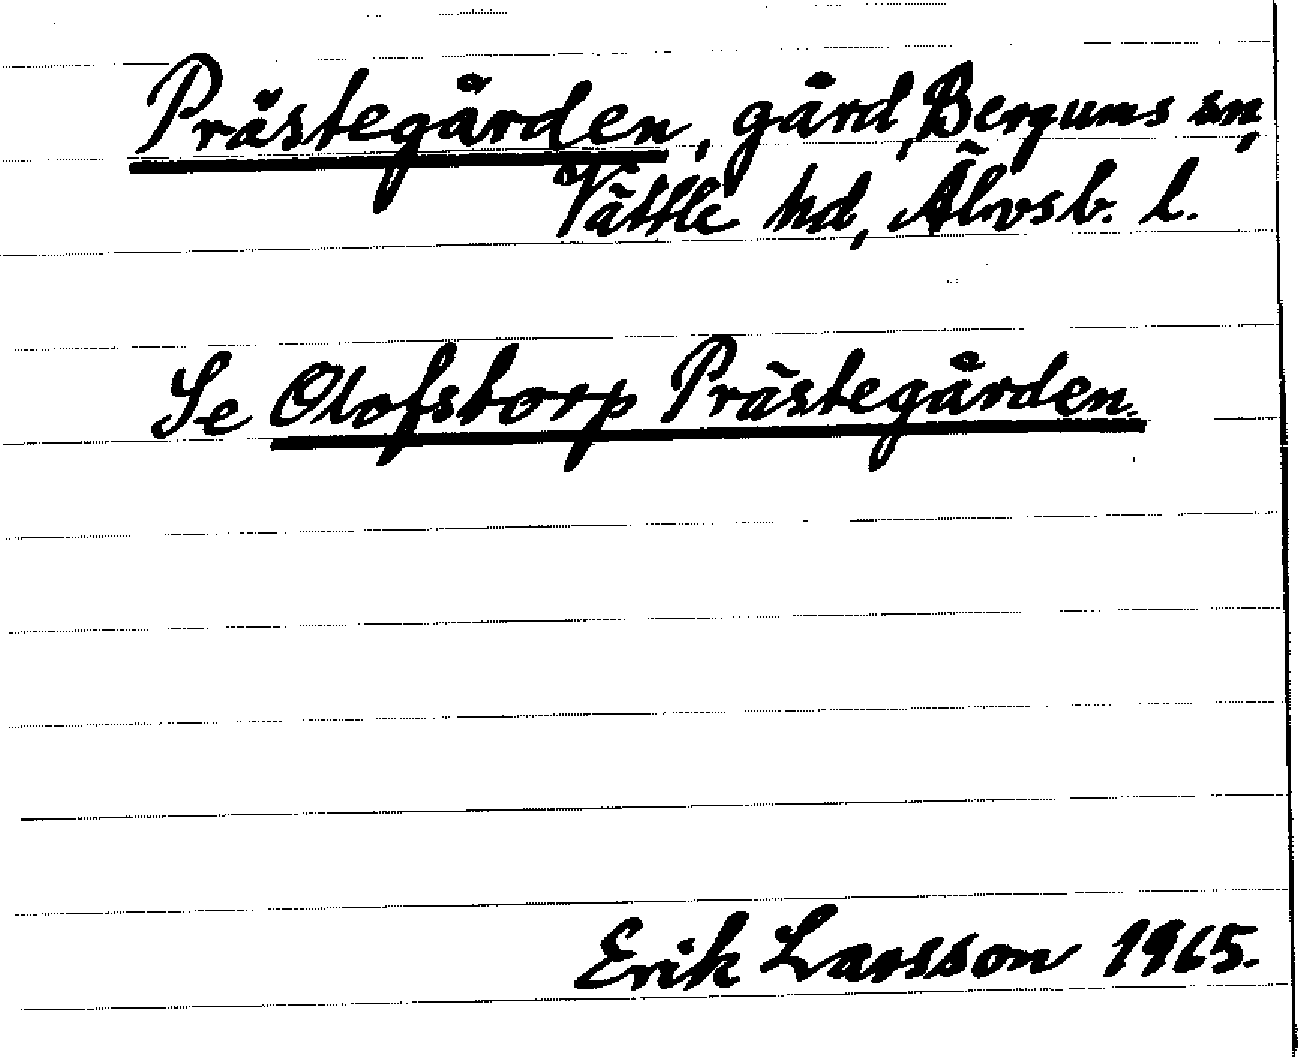 Prästegården, gård, Bergums sn,
Vättle hd, Älvsb. l.
Se Olofstorp Prästegården.
Erik Larsson 1965.